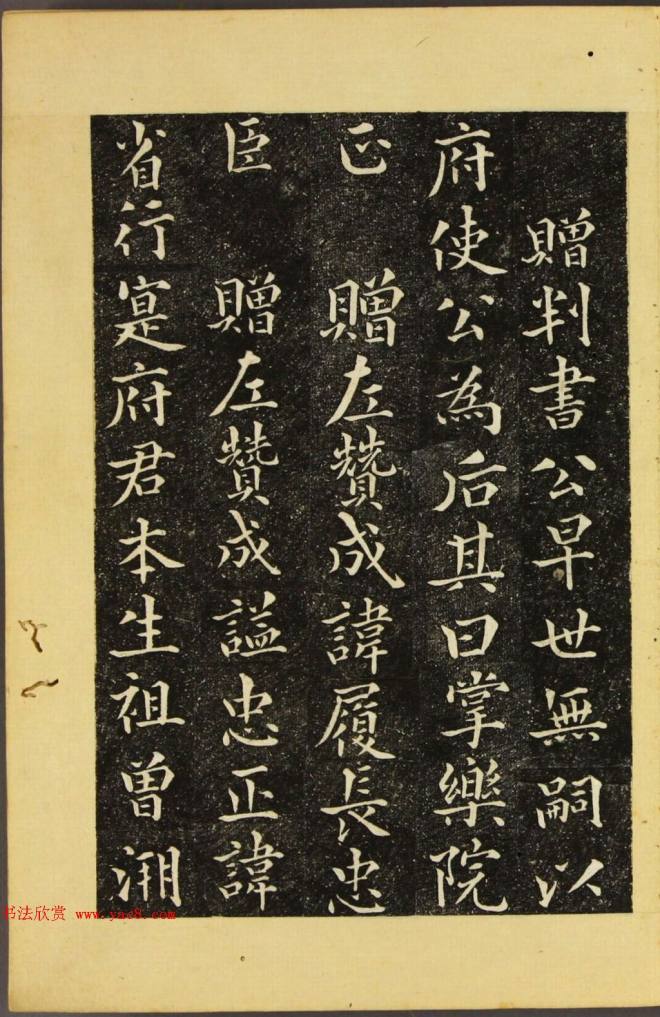 贈判書公早世無嗣以
府使公為后其曰掌樂院
正　贈左贊成諱履長忠
臣　贈左贊成謚忠正諱
省行寔府君本生祖曾
书法欣赏 www.yac8.com